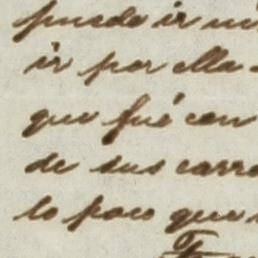 puede ir
ir por ella
que fué con
de sus carre
lo poco que